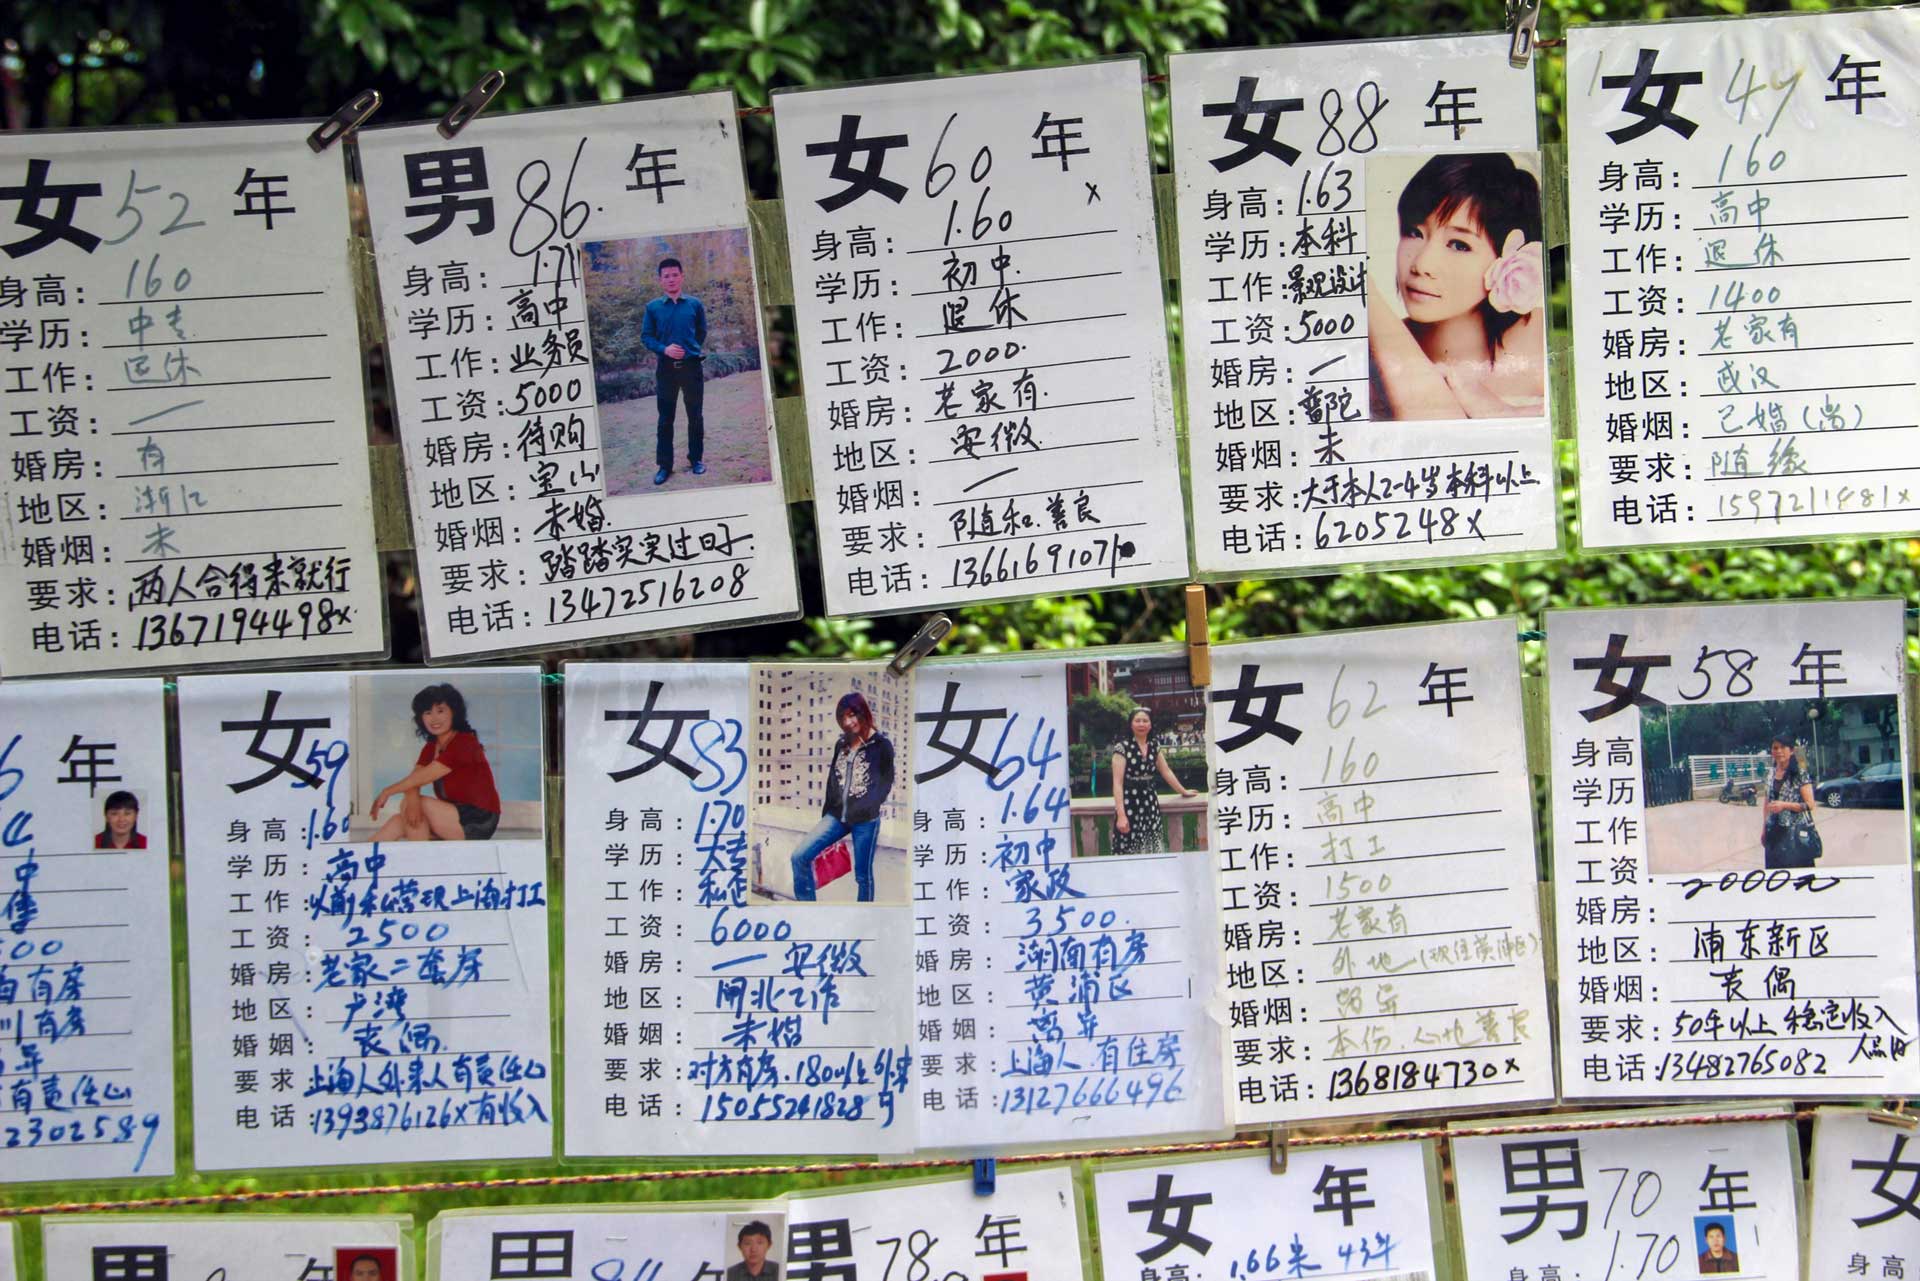 女 52 年
身高: 160
学历: 中专
工作: 退休
工资: 一
婚房: 有
地区: 浙江
婚烟: 未
要求: 两人合得来就行
电话: 1367194498x
男 86. 年
身高: 1.71
学历: 高中
工作: 业务员
工资: 5000
婚房: 待购
地区: 宝山
婚烟: 未婚
要求: 踏踏实实过日子.
电话: 13472516208
女 60 年
身高: 1.60
学历: 初中.
工作: 退休
工资: 2000.
婚房: 老家有.
地区: 安徽.
婚烟: 一
要求: 随和.善良
电话: 1366169107
女 88 年
身高: 1.63
学历: 本科
工作: 景观设计
工资: 5000
婚房: 一
地区: 普陀
婚烟: 未
要求: 大于本人2-4岁本科以上
电话: 6205248x
女 47 年
身高: 160
学历: 高中
工作: 退休
工资: 1400
婚房: 老家有
地区: 武汉
婚烟: 已婚(离)
要求: 随缘
电话: 1597211481x
年
中
有房
川有房
有责任心
2302589
女 59
身高: 1.60
学历: 高中
工作: 以前私营现上海打工
工资: 2500
婚房: 老家二套房
地区: 卢湾
婚姻: 丧偶.
要求 上海人外来人有责任心
电话: 1393876126x有收入
女 83
身高: 1.70
学历: 大专
工作: 私企
工资: 6000
婚房: 一 安徽
地区: 闸北工作
婚姻: 未婚
要求: 对方有房.180以上
电话: 15055241828
女 64
身高: 1.64
学历: 初中
工作: 家政
工资: 3500.
婚房: 湖南有房
地区: 黄浦区
婚姻: 离异
要求: 上海人.有住房
电话: 13127666496
女 62 年
身高: 160
学历: 高中
工作: 打工
工资: 1500
婚房: 老家有
地区: 外地(现住黄浦区)
婚烟: 离异
要求: 本份.心地善良
电话: 1368184730x
女 58 年
身高
学历
工作
工资 2000元
婚房:
地区: 浦东新区
婚烟: 丧偶
要求: 50年以上 稳定收入
电话: 13482765082
男 年
男 84 年
男 78 年
女 年
身高: 1.66米 43年
男 70 年
身高: 1.70
女
身高